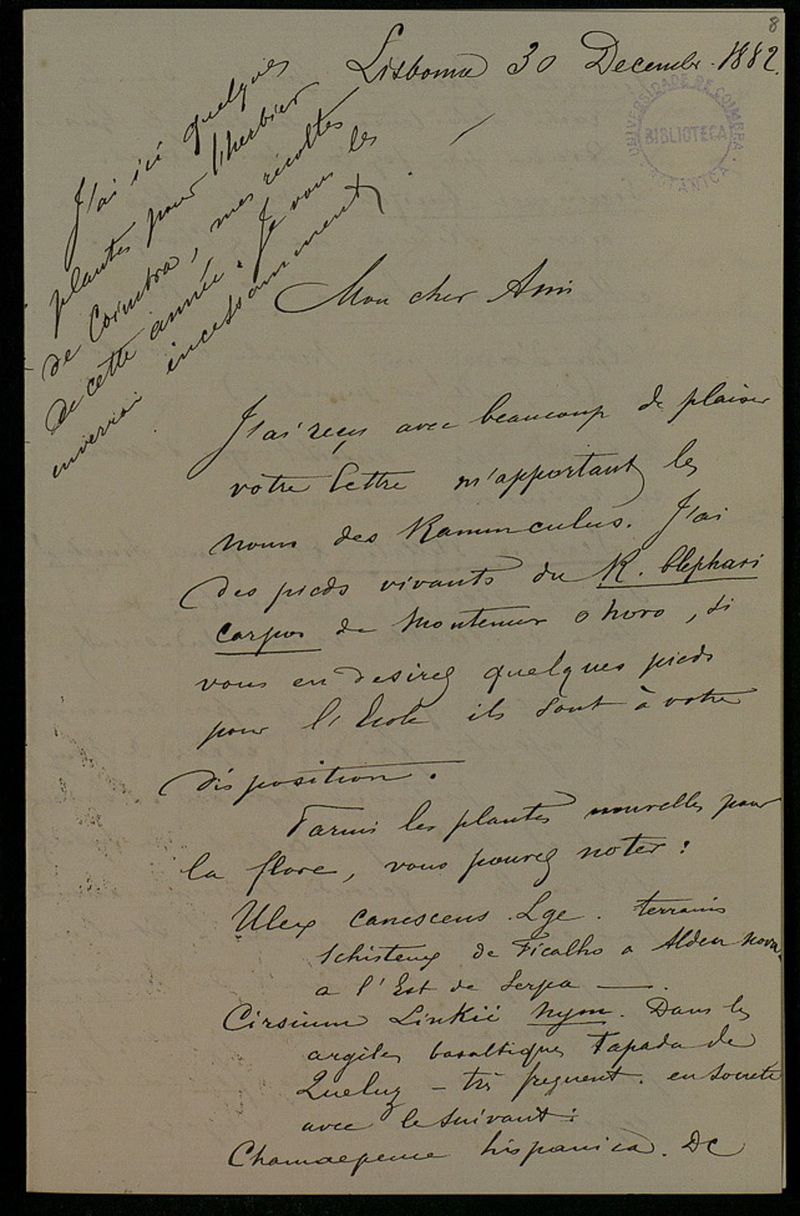 8
Lisbonne 30 Decembr. 1882.
UNIVERSIDADE DE COIMBRA
BIBLIOTECA
BOTANICA
J'ai ici quelques
plantes pour l'herbier
de Coimbra, mes récoltes
de cette année. Je vous les
enverrai incessamment
Mon cher Ami
J'ai reçu avec beaucoup de plaisir
votre lettre m'apportant les
noms des Ranunculus. J'ai
des pieds vivants du R. blephari
carpos de Montemor o novo, si
vous en desirez quelques pieds
pour l'Ecole ils sont à votre
disposition.
Parmi les plantes nouvelles pour
la flore, vous pourez noter:
Ulex canescens Lge. terrains
schisteux de Ficalho a Aldea nova
a l'Est de Serpa —.
Cirsium Linkii Nym. Dans les
argiles basaltiques Tapada de
Queluz – très frequent. en societé
avec le suivant:
Chamaepeuce hispanica. DC